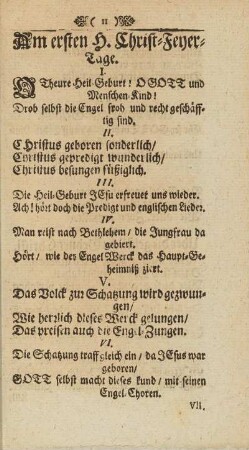 ( 11 )
Am ersten H. Christ-Feyer-
Tage.
I.
O Theure Heil-Geburt! O GOTT und
Menschen-Kind!
Drob selbst die Engel froh und recht geschäff-
tig sind.
II.
CHristus geboren sonderlich/
Christus gepredigt wunderlich/
Christus besungen süßiglich.
III.
Die Heil-Geburt JEsu erfreuet uns wieder.
Ach! hört doch die Predigt und englischen Lieder.
IV.
Man reist nach Bethlehem/ die Jungfrau da
gebiert.
Hört/ wie der Engel Werck das Haupt-Ge-
heimniß ziert.
V.
Das Volck zur Schatzung wird gezwun-
gen/
Wie herzlich dieses Werck gelungen/
Das preisen auch die Engel-Zungen.
VI.
Die Schatzung traff gleich ein/ da JEsus war
geboren/
GOTT selbst macht dieses kund/ mit seinen
Engel-Choren.
VII.